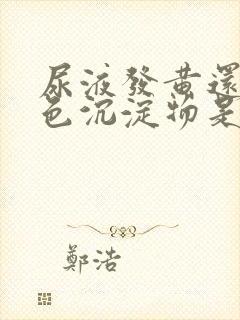 尿液發黃還
色沉淀物是
鄭浩